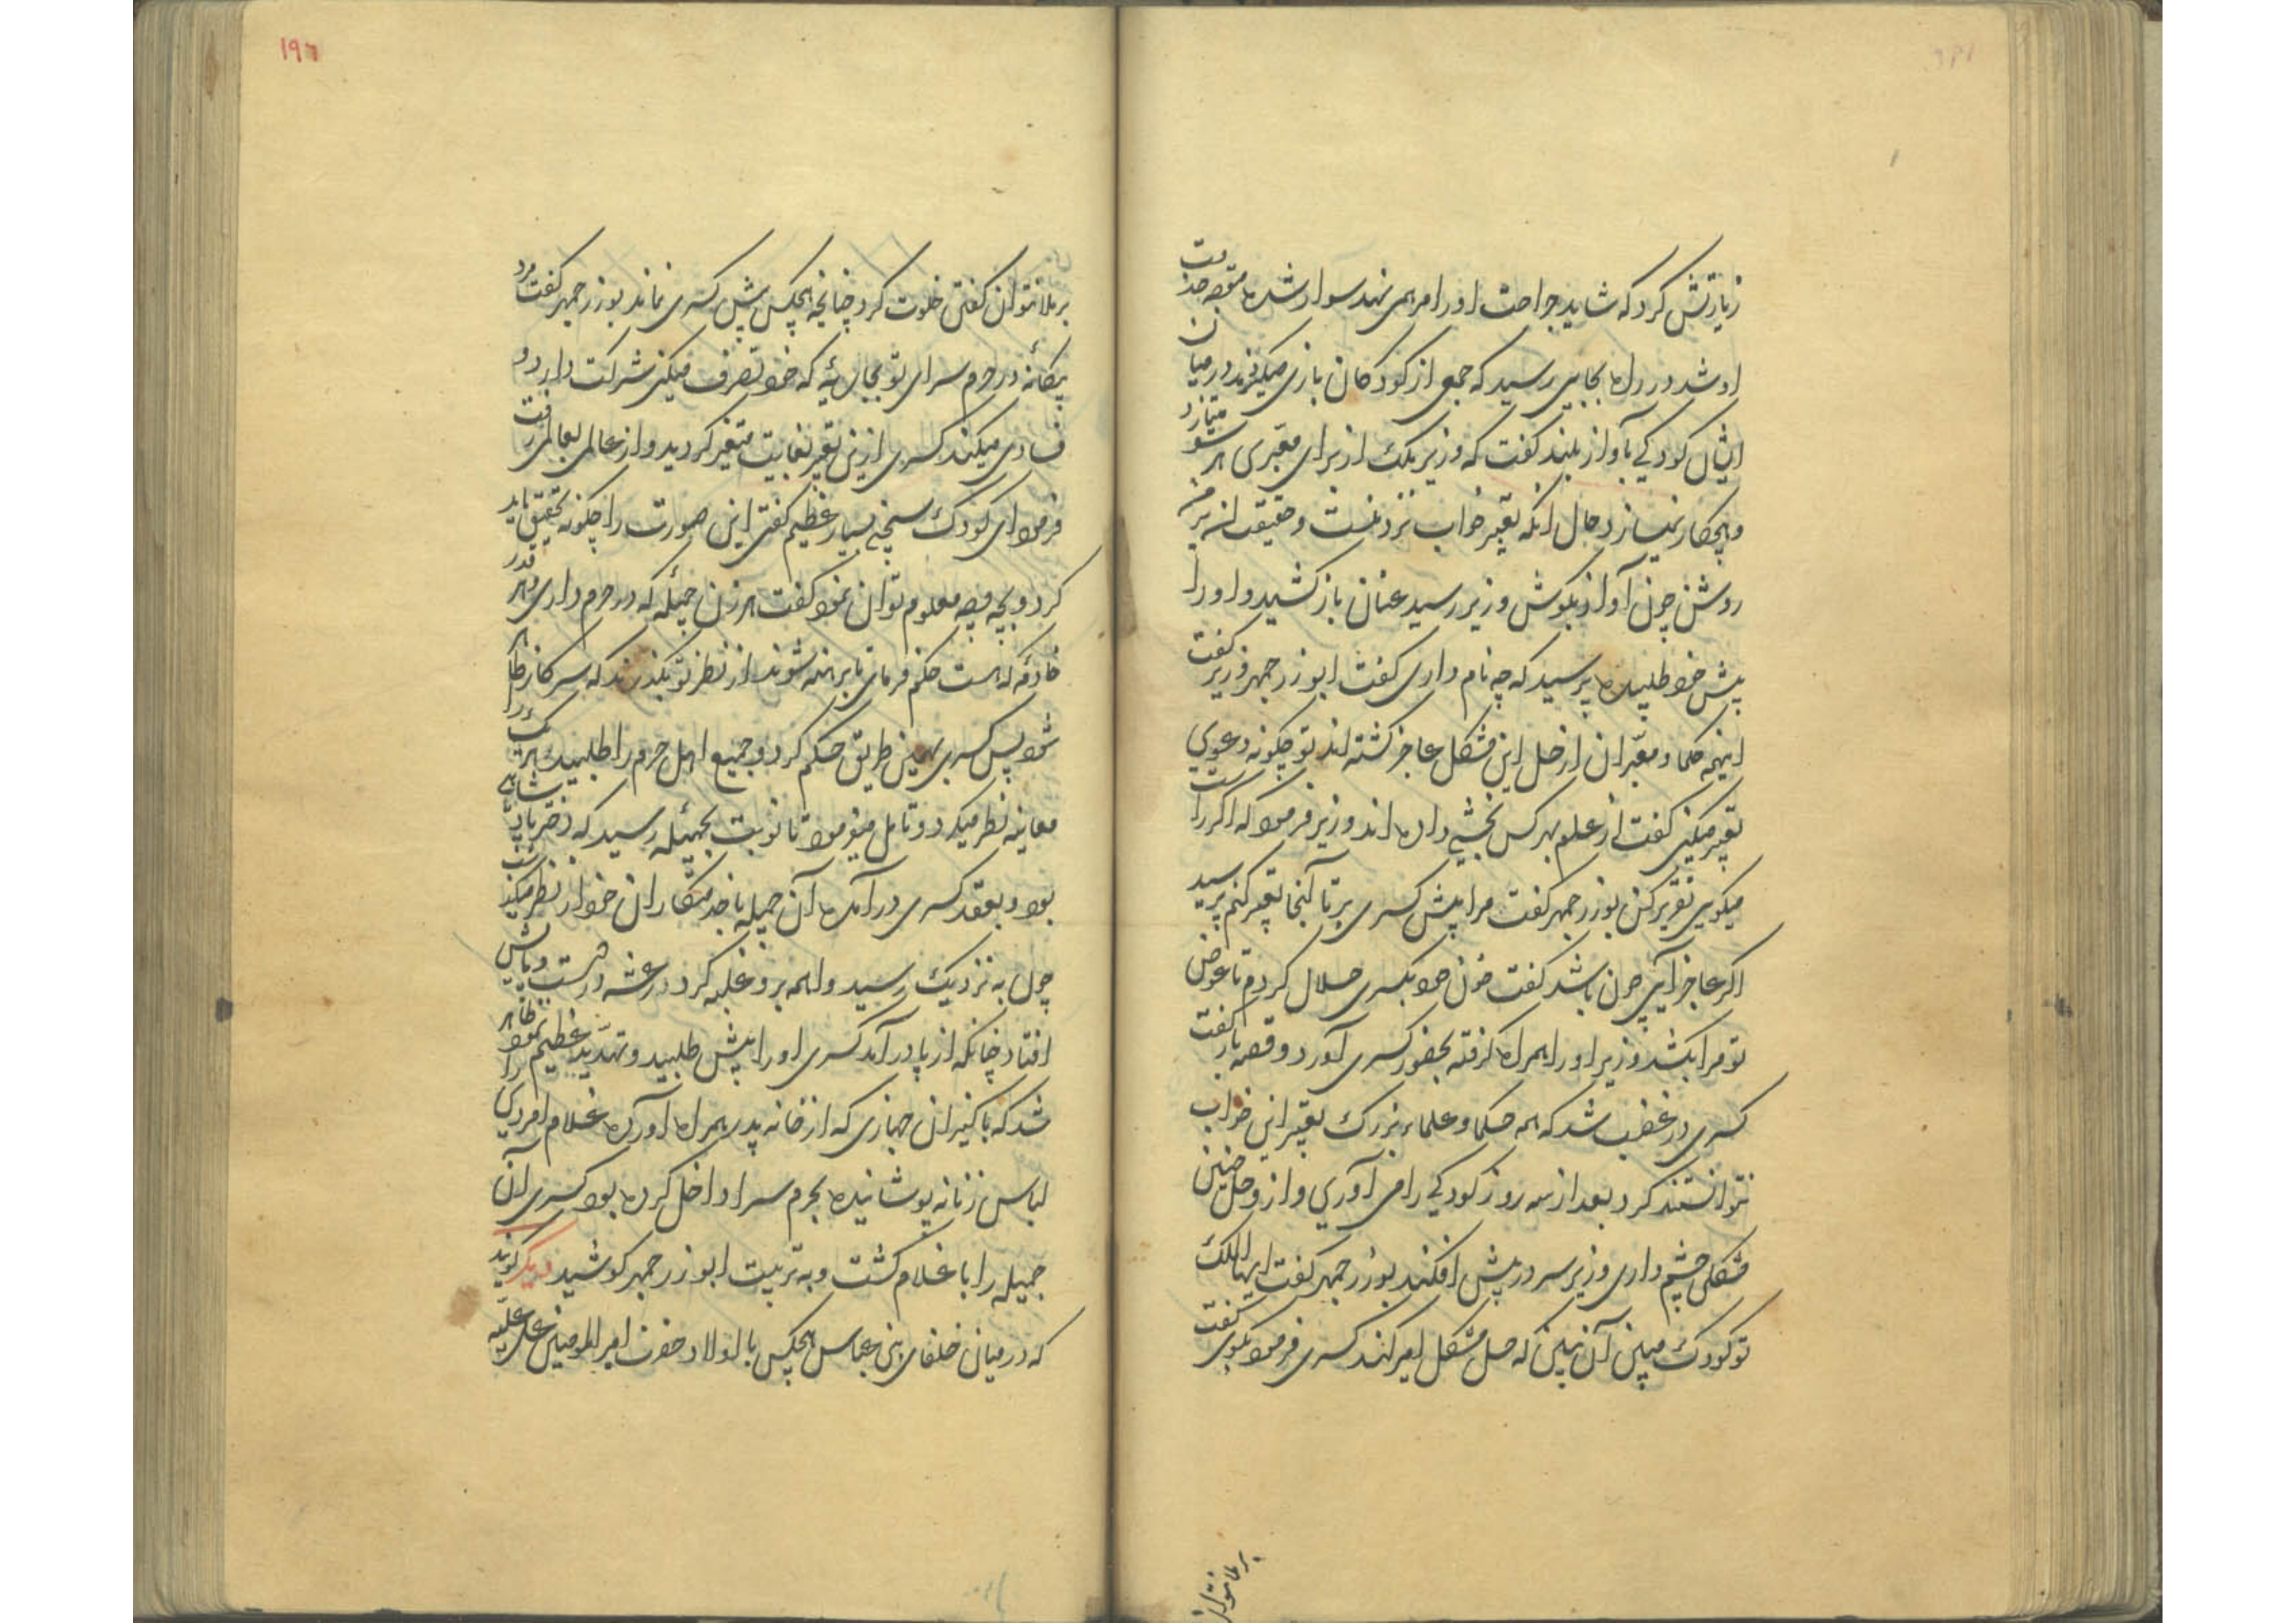 زیارتش کرد که شاید جراحت او را مرهمی نهد سوار شده متوجه خدمت
او شد در راه بجایی رسید که جمعی از کودکان بازی میکردند در میان
ایشان کودکی بآواز بلند گفت که وزیر ملک از برای معبری هر سو میتازد
و هیچ کار نمیسازد حال آنکه تعبیر خواب نزد منست و حقیقت آن بر من
روشن چون آواز بگوش وزیر رسید عنان باز کشید و او را
پیش خود طلبیده پرسید که چه نام داری گفت ابوزرجمهر وزیر گفت
اینهمه حکما و معبران از حل این مشکل عاجز گشته اند تو چگونه دعوی
تعبیر میکنی گفت از علوم بهر کس بخشی داده اند وزیر فرمود که اگر راست
میگویی تقریر کن بوزرجمهر گفت مرا پیش کسری بر تا آنجا تعبیر کنم پرسید
اگر عاجز آیی چون باشد گفت خون خود بکسری حلال کردم تا عوض
تو مرا بکشد وزیر او را همراه گرفته بحضور کسری آورد و قصه باز گفت
کسری در غضب شد که همه حکما و علماء بزرک تعبیر این خواب
نتوانستند کرد بعد از سه روز کودکی را می آوری و از و حل چنین
مشکلی چشم داری وزیر سر در پیش افکند بوزرجمهر گفت ایها الملک
تو کودک مبین آن بین که حل مشکل امیر کند کسری فرمود بگوی گفت
بر ملا نتوان
۱۹٦
بر ملا نتوان گفتن خلوت کرد چنانچه هیچکس پیش کسری نماند بوزرجمهر گفت مرد
بیگانه در حرم سرای تو بجاریه که خود تصرف میکنی شرکت دارد و
فسادی میکند کسری ازین تعبیر بغایت متغیر گردید و از عالمی بعالمی رفت
فرمود ای کودک سخنی بسیار عظیم گفتی این صورت را چگونه تحقیق باید
کرد و بچه وجه معلوم توان نمود گفت هر زن جمیله که در حرم داری و هر قدر
خادمه که هست حکم فرمای تا برهنه شوند از نظر تو بگذرند که سر کار ظاهر
شود پس کسری بهمین طریق حکم کرد و جمیع اهل حرم را طلبید هر یک را
معاینه نظر میکرد و تامل میفرمود تا نوبت بجمیله رسید که دختر پادشاهی
بود و بعقد کسری در آمده آن جمیله با خدمتکاران خود از نظر میگذشت
چون به نزدیک رسید واهمه برو غلبه کرد و رعشه در دست و پایش
افتاد چنانکه از پا در آمد کسری او را پیش طلبید و تهدید عظیم نمود ظاهر
شد که با کنیزان جهازی که از خانه پدر همراه آورده غلام امردی را
لباس زنانه پوشانیده بحرم سرا داخل کرده بود کسری آن
جمیله را با غلام کشت و به تربیت ابوزرجمهر کوشید دیگر گویند
که در میان خلفای بنی عباس هیچکس با اولاد حضرت امیر المومنین علی علیه